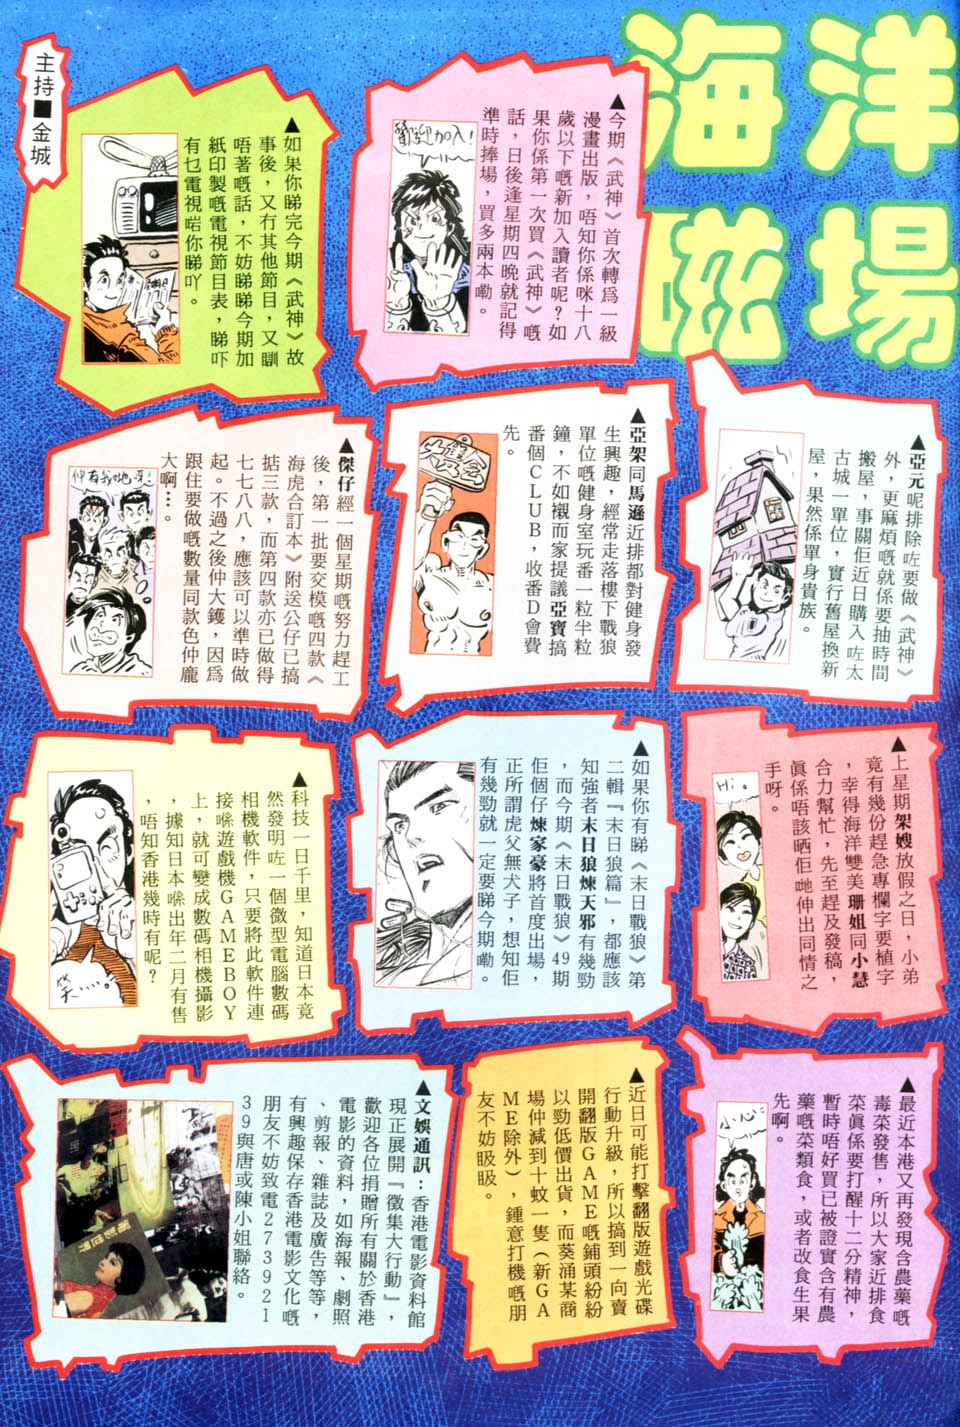 海洋
磁場
主持■金城
▲今期《武神》首次轉為一級
漫畫出版，唔知你係咪十八
歲以下嘅新加入讀者呢？如
果你係第一次買《武神》嘅
話，日後逢星期四晚就記得
準時捧場，買多兩本嘞。
歡迎加入！
▲如果你睇完今期《武神》故
事後，又冇其他節目，又瞓
唔著嘅話，不妨睇睇今期加
紙印製嘅電視節目表，睇吓
有乜電視啱你睇吖。
▲亞元呢排除咗要做《武神》
外，更麻煩嘅就係要抽時間
搬屋，事關佢近日購入咗太
古城一單位，實行舊屋換新
屋，果然係單身貴族。
▲亞架同馬遜近排都對健身發
生興趣，經常走落樓下戰狼
單位嘅健身室玩番一粒半粒
鐘，不如襯而家提議亞寶搞
番個CLUB，收番D會費
先。
▲傑仔經一個星期嘅努力趕工
後，第一批要交模嘅四款《
海虎合訂本》附送公仔已搞
掂三款，而第四款亦已做得
七七八八，應該可以準時做
起。不過之後仲大鑊，因為
跟住要做嘅數量同款色仲龐
大啊…。
仲有我哋呀！
▲上星期架嫂放假之日，小弟
竟有幾份趕急專欄字要植字
，幸得海洋雙美珊姐同小慧
合力幫忙，先至趕及發稿，
眞係唔該晒佢哋伸出同情之
手呀。
Hi。
▲如果你有睇《末日戰狼》第
二輯『末日狼篇』，都應該
知強者末日狼煉天邪有幾勁
，而今期《末日戰狼》49期
佢個仔煉家豪將首度出場，
正所謂虎父無犬子，想知佢
有幾勁就一定要睇今期嘞。
▲科技一日千里，知道日本竟
然發明咗一個微型電腦數碼
相機軟件，只要將此軟件連
接喺遊戲機GAMEBOY
上，就可變成數碼相機攝影
，據知日本喺出年二月有售
，唔知香港幾時有呢？
笑……。
▲最近本港又再發現含農藥嘅
毒菜發售，所以大家近排食
菜眞係要打醒十二分精神，
暫時唔好買已被證實含有農
藥嘅菜類食，或者改食生果
先啊。
小心！
▲近日可能打擊翻版遊戲光碟
行動升級，所以搞到一向賣
開翻版GAME嘅鋪頭紛紛
以勁低價出貨，而葵涌某商
場仲減到十蚊一隻（新GA
ME除外），鍾意打機嘅朋
友不妨昅昅。
▲文娛通訊：香港電影資料館
現正展開『徵集大行動』，
歡迎各位捐贈所有關於香港
電影的資料，如海報、劇照
、剪報、雜誌及廣告等等，
有興趣保存香港電影文化嘅
朋友不妨致電2739 21
39與唐或陳小姐聯絡。